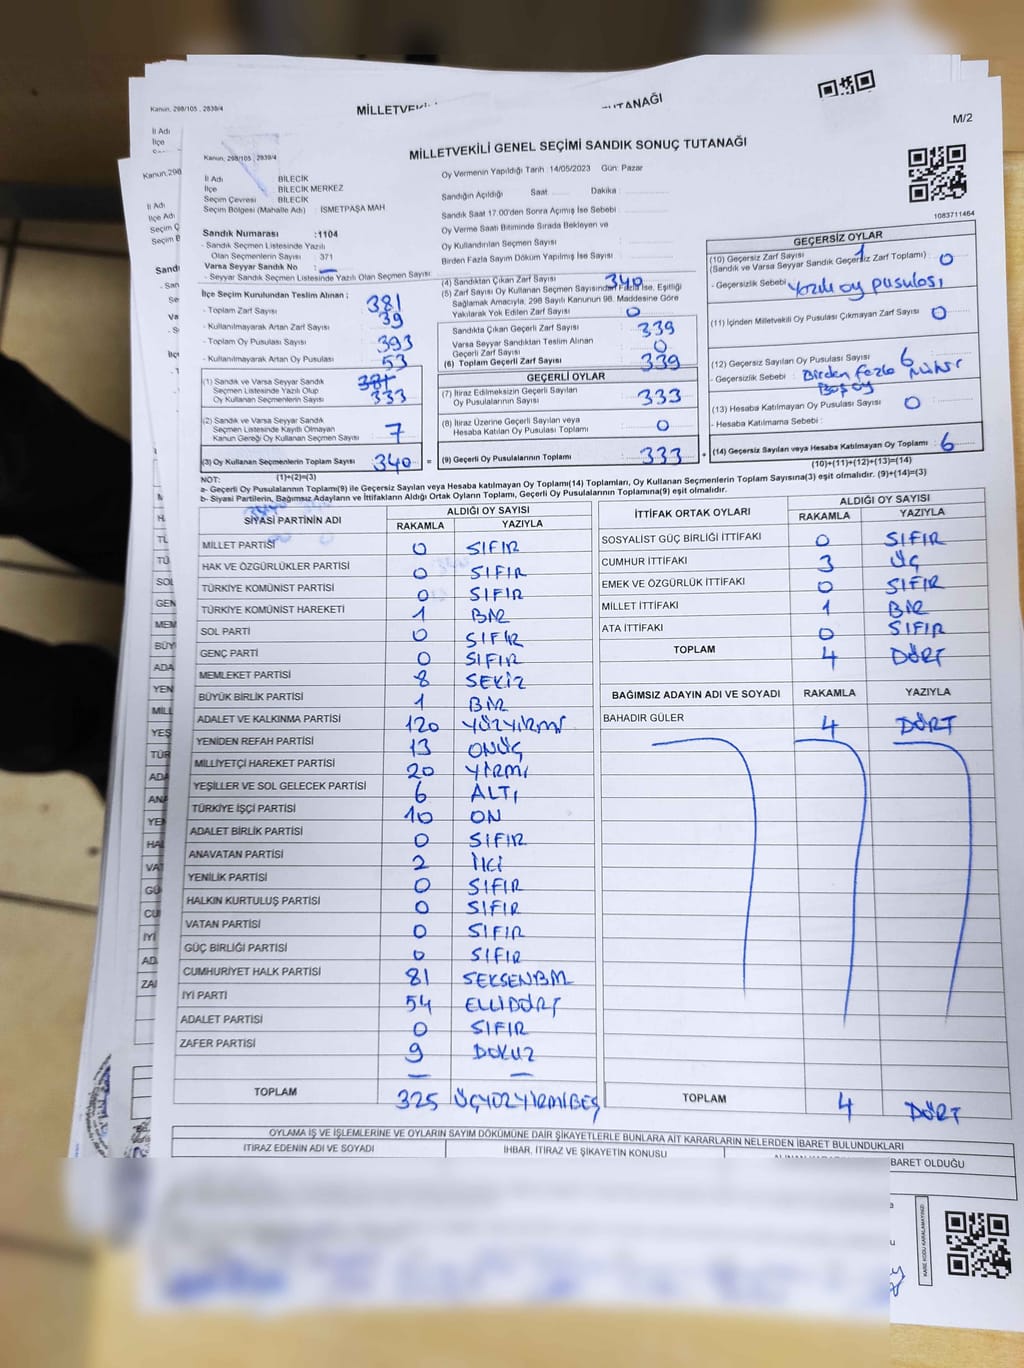 Kanun, 298/105 , 2839/4
MİLLETVEKİL
TUTANAĞI
M/2
Kanun, 298/105 , 2839/4
MİLLETVEKİLİ GENEL SEÇİMİ SANDIK SONUÇ TUTANAĞI
1083711464
İl Adı : BİLECİK
İlçe : BİLECİK MERKEZ
Seçim Çevresi : BİLECİK
Seçim Bölgesi (Mahalle Adı) : İSMETPAŞA MAH
Sandık Numarası :1104
- Sandık Seçmen Listesinde Yazılı
Olan Seçmenlerin Sayısı : 371
Varsa Seyyar Sandık No : —
- Seyyar Sandık Seçmen Listesinde Yazılı Olan Seçmen Sayısı
Oy Vermenin Yapıldığı Tarih 14/05/2023 Gün: Pazar
Sandığın Açıldığı Saat ...... Dakika :
Sandık Saat 17.00'den Sonra Açımış İse Sebebi :
Oy Verme Saati Bitiminde Sırada Bekleyen ve
Oy Kullandırılan Seçmen Sayısı :
Birden Fazla Sayım Döküm Yapılmış İse Sayısı :
İlçe Seçim Kurulundan Teslim Alınan ;
- Toplam Zarf Sayısı : 381
- Kullanılmayarak Artan Zarf Sayısı : 39
- Toplam Oy Pusulası Sayısı : 393
- Kullanılmayarak Artan Oy Pusulası : 53
(1) Sandık ve Varsa Seyyar Sandık
Seçmen Listesinde Yazılı Olup
Oy Kullanan Seçmenlerin Sayısı : 333
(2) Sandık ve Varsa Seyyar Sandık
Seçmen Listesinde Kayıtlı Olmayan
Kanun Gereği Oy Kullanan Seçmen Sayısı : 7
(3) Oy Kullanan Seçmenlerin Toplam Sayısı : 340
(1)+(2)=(3)
(4) Sandıktan Çıkan Zarf Sayısı : 340
(5) Zarf Sayısı Oy Kullanan Seçmen Sayısından Fazla İse, Eşitliği
Sağlamak Amacıyla, 298 Sayılı Kanunun 98. Maddesine Göre
Yakılarak Yok Edilen Zarf Sayısı : 0
Sandıkta Çıkan Geçerli Zarf Sayısı : 339
Varsa Seyyar Sandıktan Teslim Alınan
Geçerli Zarf Sayısı : 0
(6) Toplam Geçerli Zarf Sayısı : 339
GEÇERLİ OYLAR
(7) İtiraz Edilmeksizin Geçerli Sayılan
Oy Pusulalarının Sayısı : 333
(8) İtiraz Üzerine Geçerli Sayılan veya
Hesaba Katılan Oy Pusulası Toplamı : 0
(9) Geçerli Oy Pusulalarının Toplamı : 333
GEÇERSİZ OYLAR
(10) Geçersiz Zarf Sayısı 1
(Sandık ve Varsa Seyyar Sandık Geçersiz Zarf Toplamı) : 0
- Geçersizlik Sebebi : Yazılı oy pusulası
(11) İçinden Milletvekili Oy Pusulası Çıkmayan Zarf Sayısı : 0
(12) Geçersiz Sayılan Oy Pusulası Sayısı : 6
- Geçersizlik Sebebi : Birden fazla mühür
Boş oy
(13) Hesaba Katılmayan Oy Pusulası Sayısı : 0
- Hesaba Katılmama Sebebi :
(14) Geçersiz Sayılan veya Hesaba Katılmayan Oy Toplamı : 6
(10)+(11)+(12)+(13)=(14)
NOT:
a- Geçerli Oy Pusulalarının Toplamı(9) ile Geçersiz Sayılan veya Hesaba katılmayan Oy Toplamı(14) Toplamları, Oy Kullanan Seçmenlerin Toplam Sayısına(3) eşit olmalıdır. (9)+(14)=(3)
b- Siyasi Partilerin, Bağımsız Adayların ve İttifakların Aldığı Ortak Oyların Toplamı, Geçerli Oy Pusulalarının Toplamına(9) eşit olmalıdır.
SİYASİ PARTİNİN ADI ALDIĞI OY SAYISI
RAKAMLA YAZIYLA
MİLLET PARTİSİ 0 SIFIR
HAK VE ÖZGÜRLÜKLER PARTİSİ 0 SIFIR
TÜRKİYE KOMÜNİST PARTİSİ 0 SIFIR
TÜRKİYE KOMÜNİST HAREKETİ 1 BİR
SOL PARTİ 0 SIFIR
GENÇ PARTİ 0 SIFIR
MEMLEKET PARTİSİ 8 SEKİZ
BÜYÜK BİRLİK PARTİSİ 1 BİR
ADALET VE KALKINMA PARTİSİ 120 YÜZYİRMİ
YENİDEN REFAH PARTİSİ 13 ONÜÇ
MİLLİYETÇİ HAREKET PARTİSİ 20 YİRMİ
YEŞİLLER VE SOL GELECEK PARTİSİ 6 ALTI
TÜRKİYE İŞÇİ PARTİSİ 10 ON
ADALET BİRLİK PARTİSİ 0 SIFIR
ANAVATAN PARTİSİ 2 İKİ
YENİLİK PARTİSİ 0 SIFIR
HALKIN KURTULUŞ PARTİSİ 0 SIFIR
VATAN PARTİSİ 0 SIFIR
GÜÇ BİRLİĞİ PARTİSİ 0 SIFIR
CUMHURİYET HALK PARTİSİ 81 SEKSENBİR
İYİ PARTİ 54 ELLİDÖRT
ADALET PARTİSİ 0 SIFIR
ZAFER PARTİSİ 9 DOKUZ
— —
TOPLAM 325 ÜÇYÜZYİRMİBEŞ
İTTİFAK ORTAK OYLARI ALDIĞI OY SAYISI
RAKAMLA YAZIYLA
SOSYALİST GÜÇ BİRLİĞİ İTTİFAKI 0 SIFIR
CUMHUR İTTİFAKI 3 ÜÇ
EMEK VE ÖZGÜRLÜK İTTİFAKI 0 SIFIR
MİLLET İTTİFAKI 1 BİR
ATA İTTİFAKI 0 SIFIR
TOPLAM 4 DÖRT
BAĞIMSIZ ADAYIN ADI VE SOYADI RAKAMLA YAZIYLA
BAHADIR GÜLER 4 DÖRT
TOPLAM 4 DÖRT
OYLAMA İŞ VE İŞLEMLERİNE VE OYLARIN SAYIM DÖKÜMÜNE DAİR ŞİKAYETLERLE BUNLARA AİT KARARLARIN NELERDEN İBARET BULUNDUKLARI
İTİRAZ EDENİN ADI VE SOYADI İHBAR, İTİRAZ VE ŞİKAYETİN KONUSU BARET OLDUĞU
KARE KODU KARALAMAYINIZ!